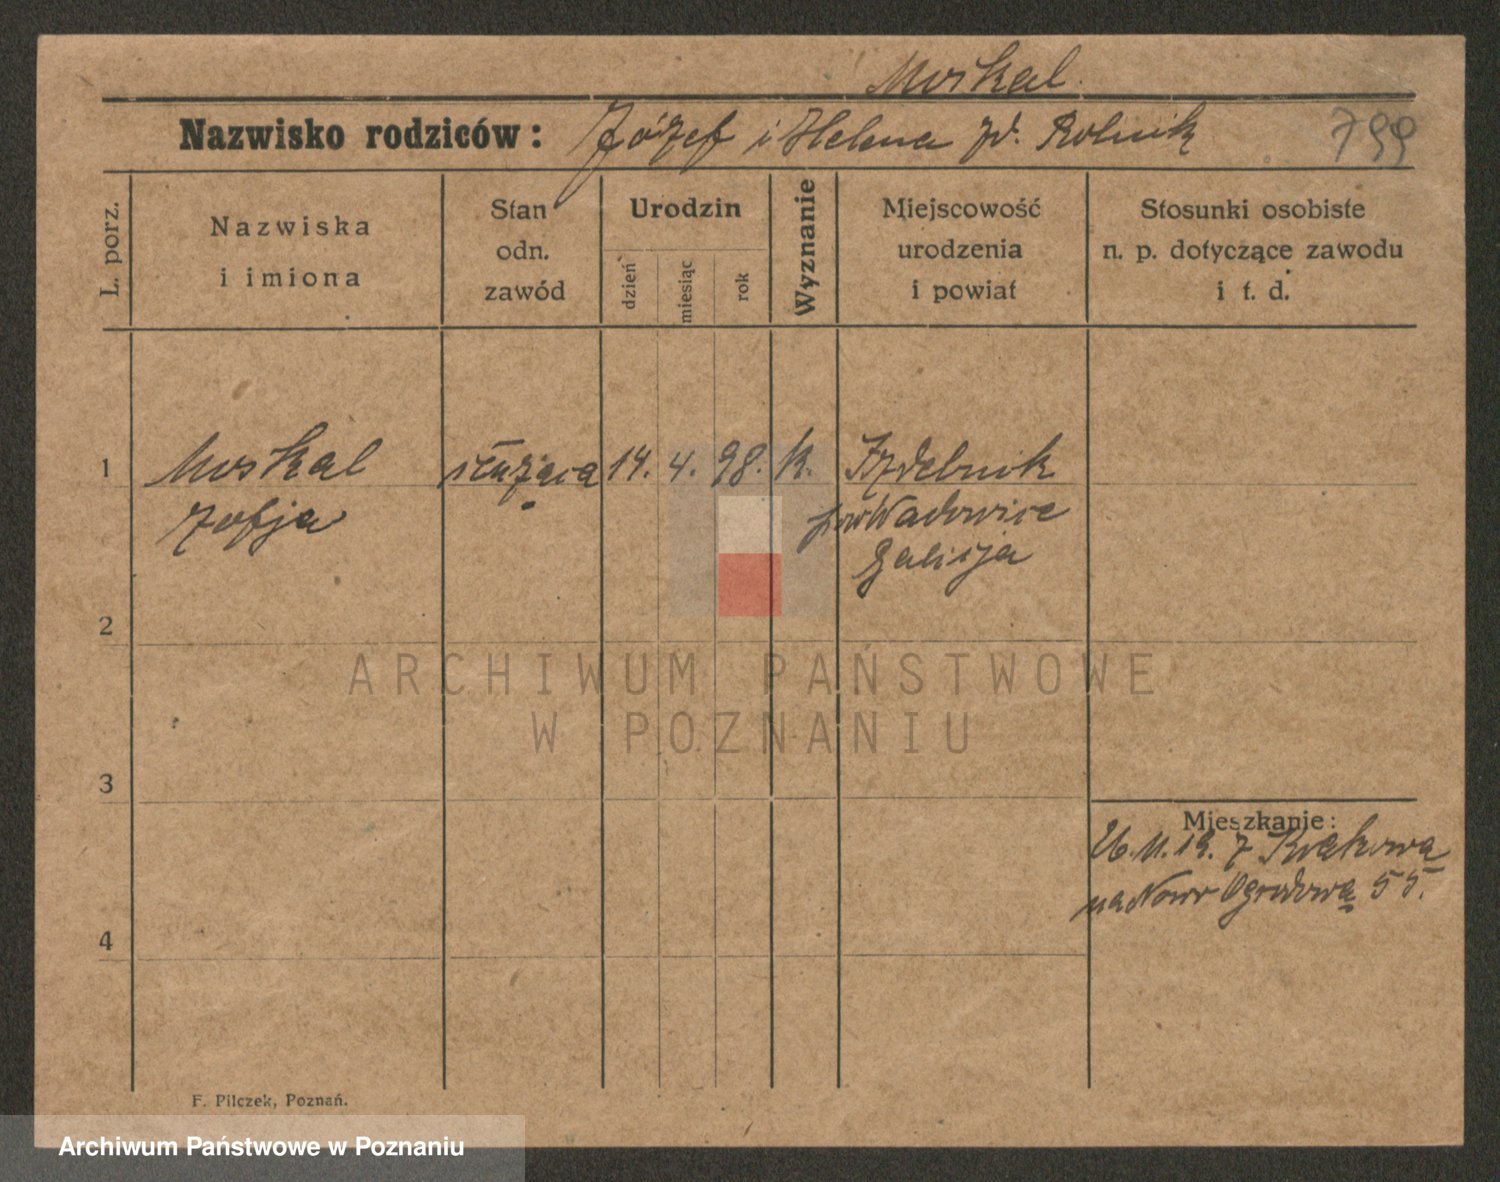 Moskal
Nazwisko rodziców: Józef i Helena zd. Rolnik 799
L. porz.
Nazwiska
i imiona
Stan
odn.
zawód
Urodzin
dzień
miesiąc
rok
Wyznanie
Miejscowość
urodzenia
i powiat
Stosunki osobiste
n. p. dotyczące zawodu
i t. d.
1 Moskal służąca 14. 4. 98. k. Izdebnik
Zofja pow Wadowice
Galicja
2
3
4
Mieszkanie:
26. 11. 19. z Krakowa
na Nowo Ogrodową 55.
F. Pilczek, Poznań.
ARCHIWUM PAŃSTWOWE
W POZNANIU
Archiwum Państwowe w Poznaniu